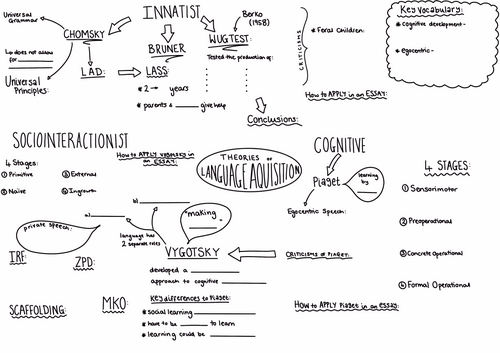 INNATIST
Universal
Grammar
CHOMSKY
↳ does not allow
for
Universal
Principles:
LAD:
BRUNER
LASS:
* 2 → years
* parents & give help
WUGTEST:
Berko
(1958)
Tested the production of:
Conclusions:
CRITICISMS
* Feral Children:
How to APPLY in an ESSAY:
Key Vocabulary:
* cognitive development -
* egocentric -
SOCIOINTERACTIONIST
4 Stages:
① Primitive
② Naive
③ External
④ Ingrown
How to APPLY Vygotsky in an
ESSAY:
THEORIES OF
LANGUAGE AQUISITION
COGNITIVE
Piaget
learning
by
Egocentric Speech:
4 STAGES:
① Sensorimotor
② Preoperational
③ Concrete Operational
④ Formal Operational
private speech:
a)
b)
language has
2 separate roles
"making
"
VYGOTSKY
CRITICISMS OF PIAGET:
IRF:
ZPD:
developed a
approach to cognitive
SCAFFOLDING:
MKO:
Key differences to Piaget:
* social learning
* have to be to learn
* learning could be
How to APPLY Piaget in an ESSAY: